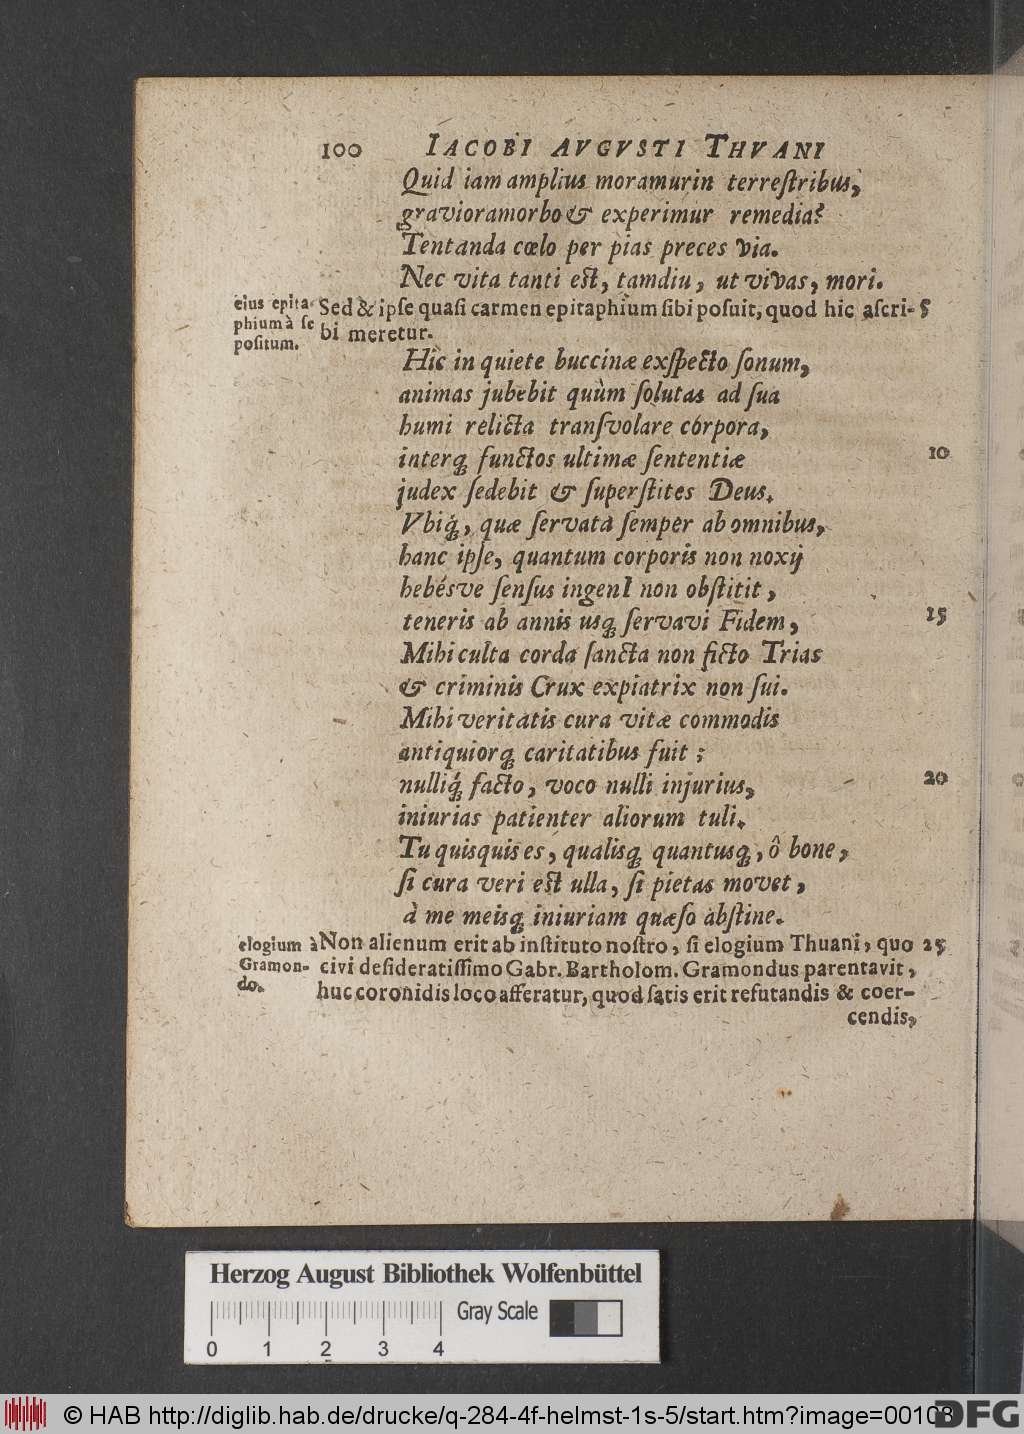 100 IACOBI AVGVSTI THVANI
Quid iam amplius moramurin terreſtribus,
gravioramorbo & experimur remedia?
Tentanda cœlo per pias preces via.
Nec vita tanti eſt, tamdiu, ut vivas, mori.
eius epita-
phium à ſe
poſitum.
Sed & ipſe quaſi carmen epitaphium ſibi poſuit, quod hic aſcri- 5
bi meretur.
Hic in quiete buccinæ exſpecto ſonum,
animas jubebit quùm ſolutas ad ſua
humi relicta tranſvolare córpora,
interq́ functos ultimæ ſententiæ 10
judex ſedebit & ſuperſtites Deus.
Vbiq́, quæ ſervata ſemper ab omnibus,
hanc ipſe, quantum corporis non noxij
hebésve ſenſus ingenI non obſtitit,
teneris ab annis usq; ſervavi Fidem, 15
Mihi culta corda ſancta non ficto Trias
& criminis Crux expiatrix non ſui.
Mihi veritatis cura vitæ commodis
antiquiorq; caritatibus fuit;
nulliq́; facto, voco nulli injurius, 20
iniurias patienter aliorum tuli.
Tu quisquis es, qualisq; quantusq;, ô bone,
ſi cura veri eſt ulla, ſi pietas movet,
à me meisq; iniuriam quæſo abſtine.
elogium à
Gramon-
do.
Non alienum erit ab inſtituto noſtro, ſi elogium Thuani, quo 25
civi deſideratiſſimo Gabr. Bartholom. Gramondus parentavit,
huc coronidis loco afferatur, quod ſatis erit refutandis & coer-
cendis,
Herzog August Bibliothek Wolfenbüttel
Gray Scale
0 1 2 3 4
© HAB http://diglib.hab.de/drucke/q-284-4f-helmst-1s-5/start.htm?image=00108
DFG